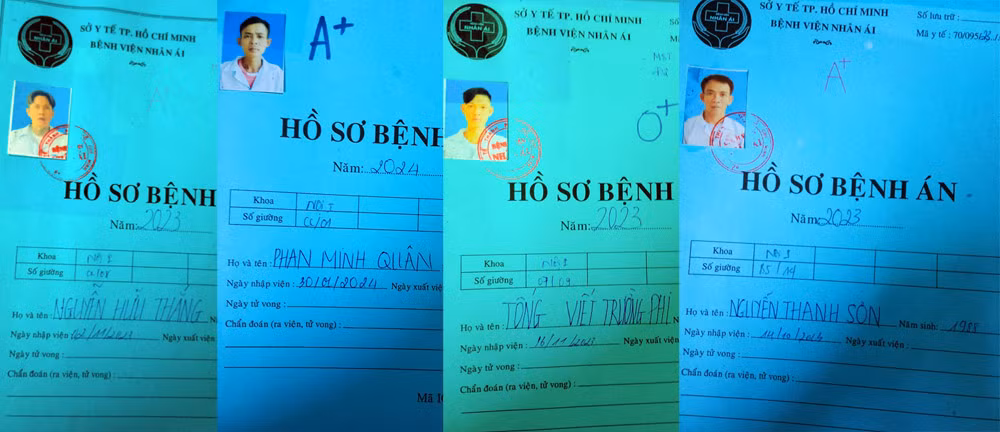 NHÂN ÁI
SỞ Y TẾ TP. HỒ CHÍ MINH
BỆNH VIỆN NHÂN ÁI
HỒ SƠ BỆNH
Năm: 2023
Khoa
Số giường
Họ và tên : NGUYỄN HỮU THẮNG
Ngày nhập viện : Ngày xuất viện
Ngày tử vong :
Chẩn đoán (ra viện, tử vong) :
A+
HỒ SƠ BỆNH
Năm: 2024
Khoa NỘI 1
Số giường
Họ và tên : PHAN MINH QUÂN
Ngày nhập viện : 30/01/2024 Ngày xuất viện
Ngày tử vong :
Chẩn đoán (ra viện, tử vong) :
NHÂN ÁI
SỞ Y TẾ TP. HỒ CHÍ MINH
BỆNH VIỆN NHÂN ÁI
O+
HỒ SƠ BỆNH
Năm: 2023
Khoa NỘI 1
Số giường
Họ và tên : TỐNG VIẾT TRƯỜNG PHI
Ngày nhập viện : 16/11/2023 Ngày xuất viện
Ngày tử vong :
Chẩn đoán (ra viện, tử vong) :
NHÂN ÁI
SỞ Y TẾ TP. HỒ CHÍ MINH
BỆNH VIỆN NHÂN ÁI
Số lưu trữ :
Mã y tế : 70/095
A+
HỒ SƠ BỆNH ÁN
Năm: 2023
Khoa NỘI 1
Số giường
Họ và tên : NGUYỄN THANH SƠN Năm sinh: 1988
Ngày nhập viện : Ngày xuất viện :
Ngày tử vong :
Chẩn đoán (ra viện, tử vong) :